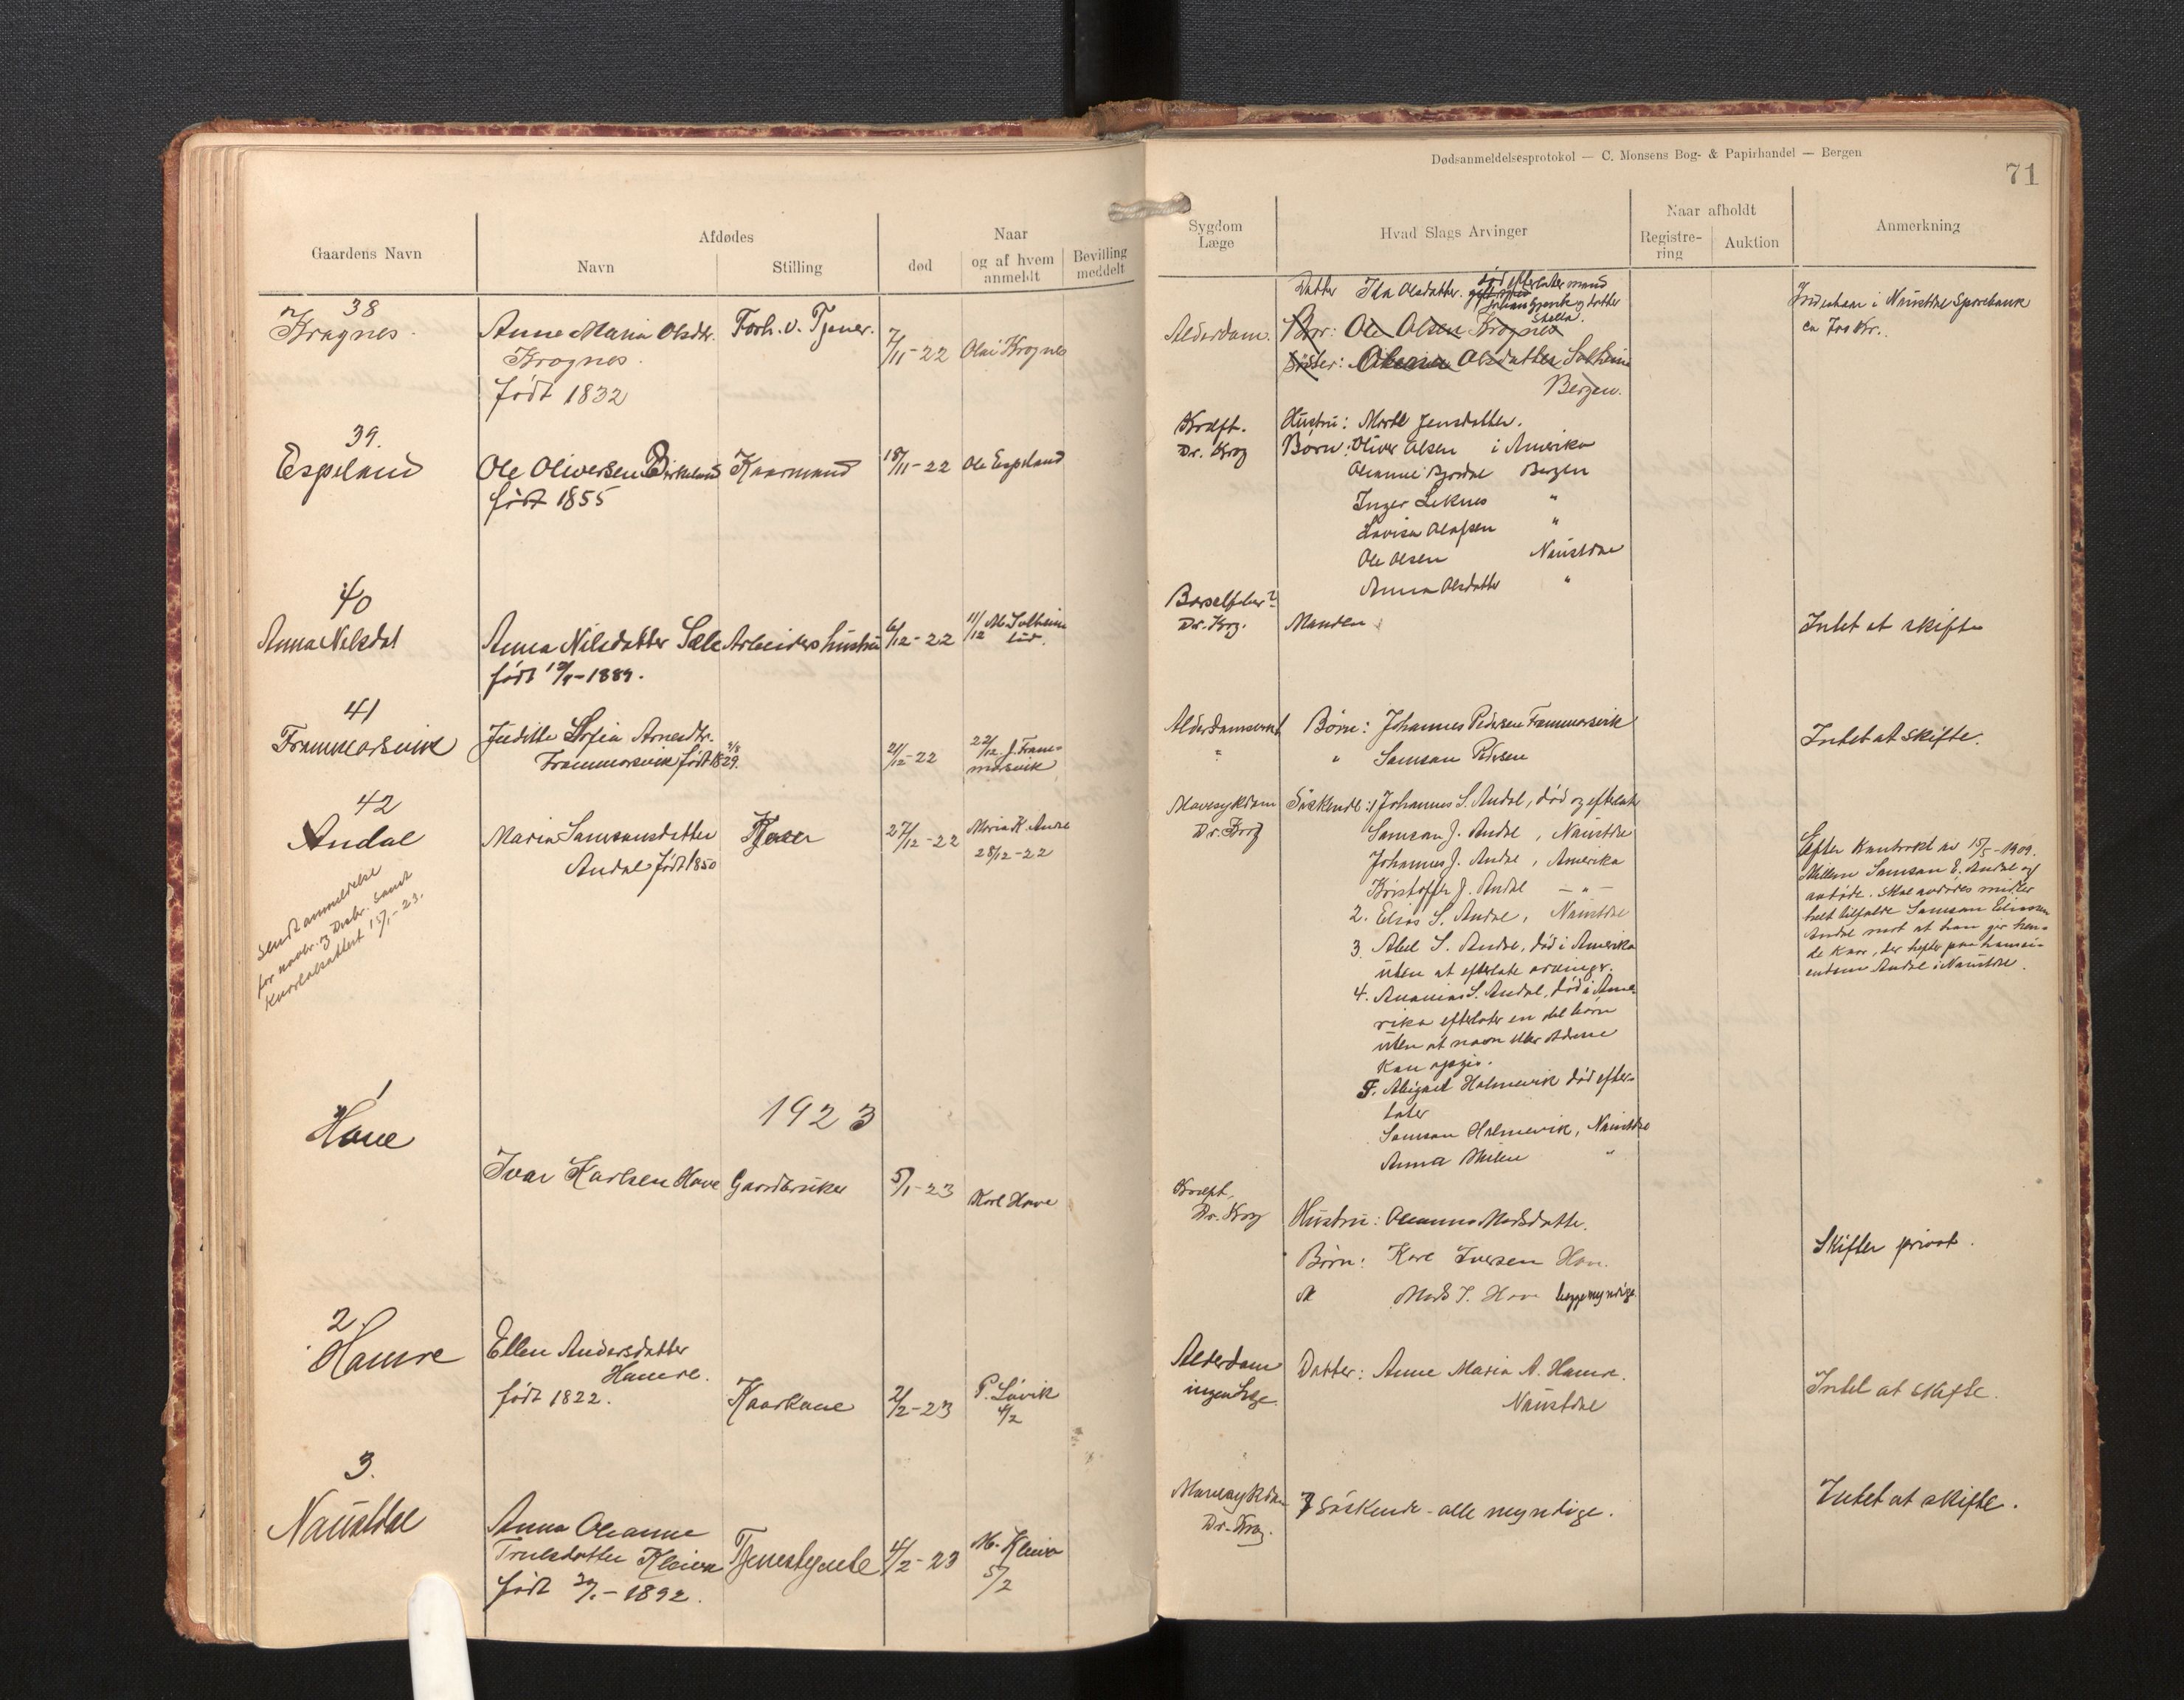 Dødsanmeldelsesprotokol — C. Monsens Bog- & Papirhandel — Bergen
71
Gaardens Navn
Afdødes
Navn
Stilling
Naar
død
og af hvem anmeldt
Bevilling meddelt
Sygdom
Læge
Hvad Slags Arvinger
Naar afholdt
Registre-
ring
Auktion
Anmerkning
38
Krognes.
Anne Maria Olsdtr.
Krognes.
født 1832
Forh. v. Tjener.
7/11-22
Olai Krognes
Alderdom.
Datter Ida Olsdatter. død efterlater mand
og datter
Stella.
Bror: Ole Olsen Krognes
Søster: Olsdatter Solheim
Bergen.
Indestaar i Naustdal Sparebank
ca 700 Kr.
39.
Espeland
Ole Oliversen Birkeland
født 1855
Kaarmand
18/11-22
Ole Espeland
Kræft.
Dr. Krog
Hustru: Marte Jensdatter.
Børn: Oliver Olsen i Amerika
Oleanne Bjørdal Bergen
Inger Leknes "
Lovisa Olafsen "
Ole Olsen Naustdal
Anna Olsdatter "
40
Anna Nilsdal
Anna Nilsdatter Sæle
født 19/9-1889.
Arbeiders hustru
6/12-22
11/12 M. Solheim
Barselfeber?
Dr. Krog.
Manden
Intet at skifte
41
Frammarsvik
Juditte Sofia Arnesdtr.
Frammarsvik født 1829.
21/12-22
22/12 J. Fram-
marsvik
Alderdomssvækt
"
Børn: Johannes Pedersen Frammarsvik
" Samson Pedersen
Intet at skifte.
42
Andal
Maria Samsonsdatter
Andal født 1850
27/12-22
Maria K. Andal
28/12-22
Mavesykdom
Dr. Krog
Søskende: 1 Johannes S. Andal, død og efterlate
Samson J. Andal, Naustdal
Johannes J. Andal, Amerika
Kristoffer J. Andal — " —
2. Elias S. Andal, Naustdal
3. Abel S. Andal, død i Amerika
uten at efterlate arvinger.
4. Ananias S. Andal, død i Ame-
rika efterlater en del børn
uten at navn eller adresse
kan opgis.
5. Abigael Holmevik død efter-
later
Samson Holmevik, Naustdal
Anna Milen "
Efter kontrakt av 15/5-1909.
Millem Samson E. Andal og
avdøde. skal avdødes midler
helt tilfalde Samson Eliassen
Andal mot at han gir hen-
de kaar, der hefter paa hans ei-
endom Andal i Naustdal.
Sendt anmeldelse
for novbr. og Desbr. samt
kvartalsattest 15/1-23.
1923
1
Hove
Ivar Karlsen Hove
Gaardbruker
5/1-23
Karl Hove
Kræft.
Dr. Krog
Hustru: Oleanna Madsdatter.
Børn: Karl Iversen Hove.
Mads I. Hove begge myndige
Skifter privat.
2.
Hamre
Ellen Andersdatter
Hamre.
født 1822.
Kaarkone
2/2-23
P. Løvik
4/2
Alderdom
ingen Læge.
Datter: Anne Maria A. Hamre.
Naustdal
Intet at skifte.
3.
Naustdal
Anna Oleanne
Trulsdatter Kleiva
født 1892.
Tjenestejente
4/2-23
M. Kleiva
5/2
Mavesykdom
Dr. Krog.
7 søskende - alle myndige.
Intet at skifte.